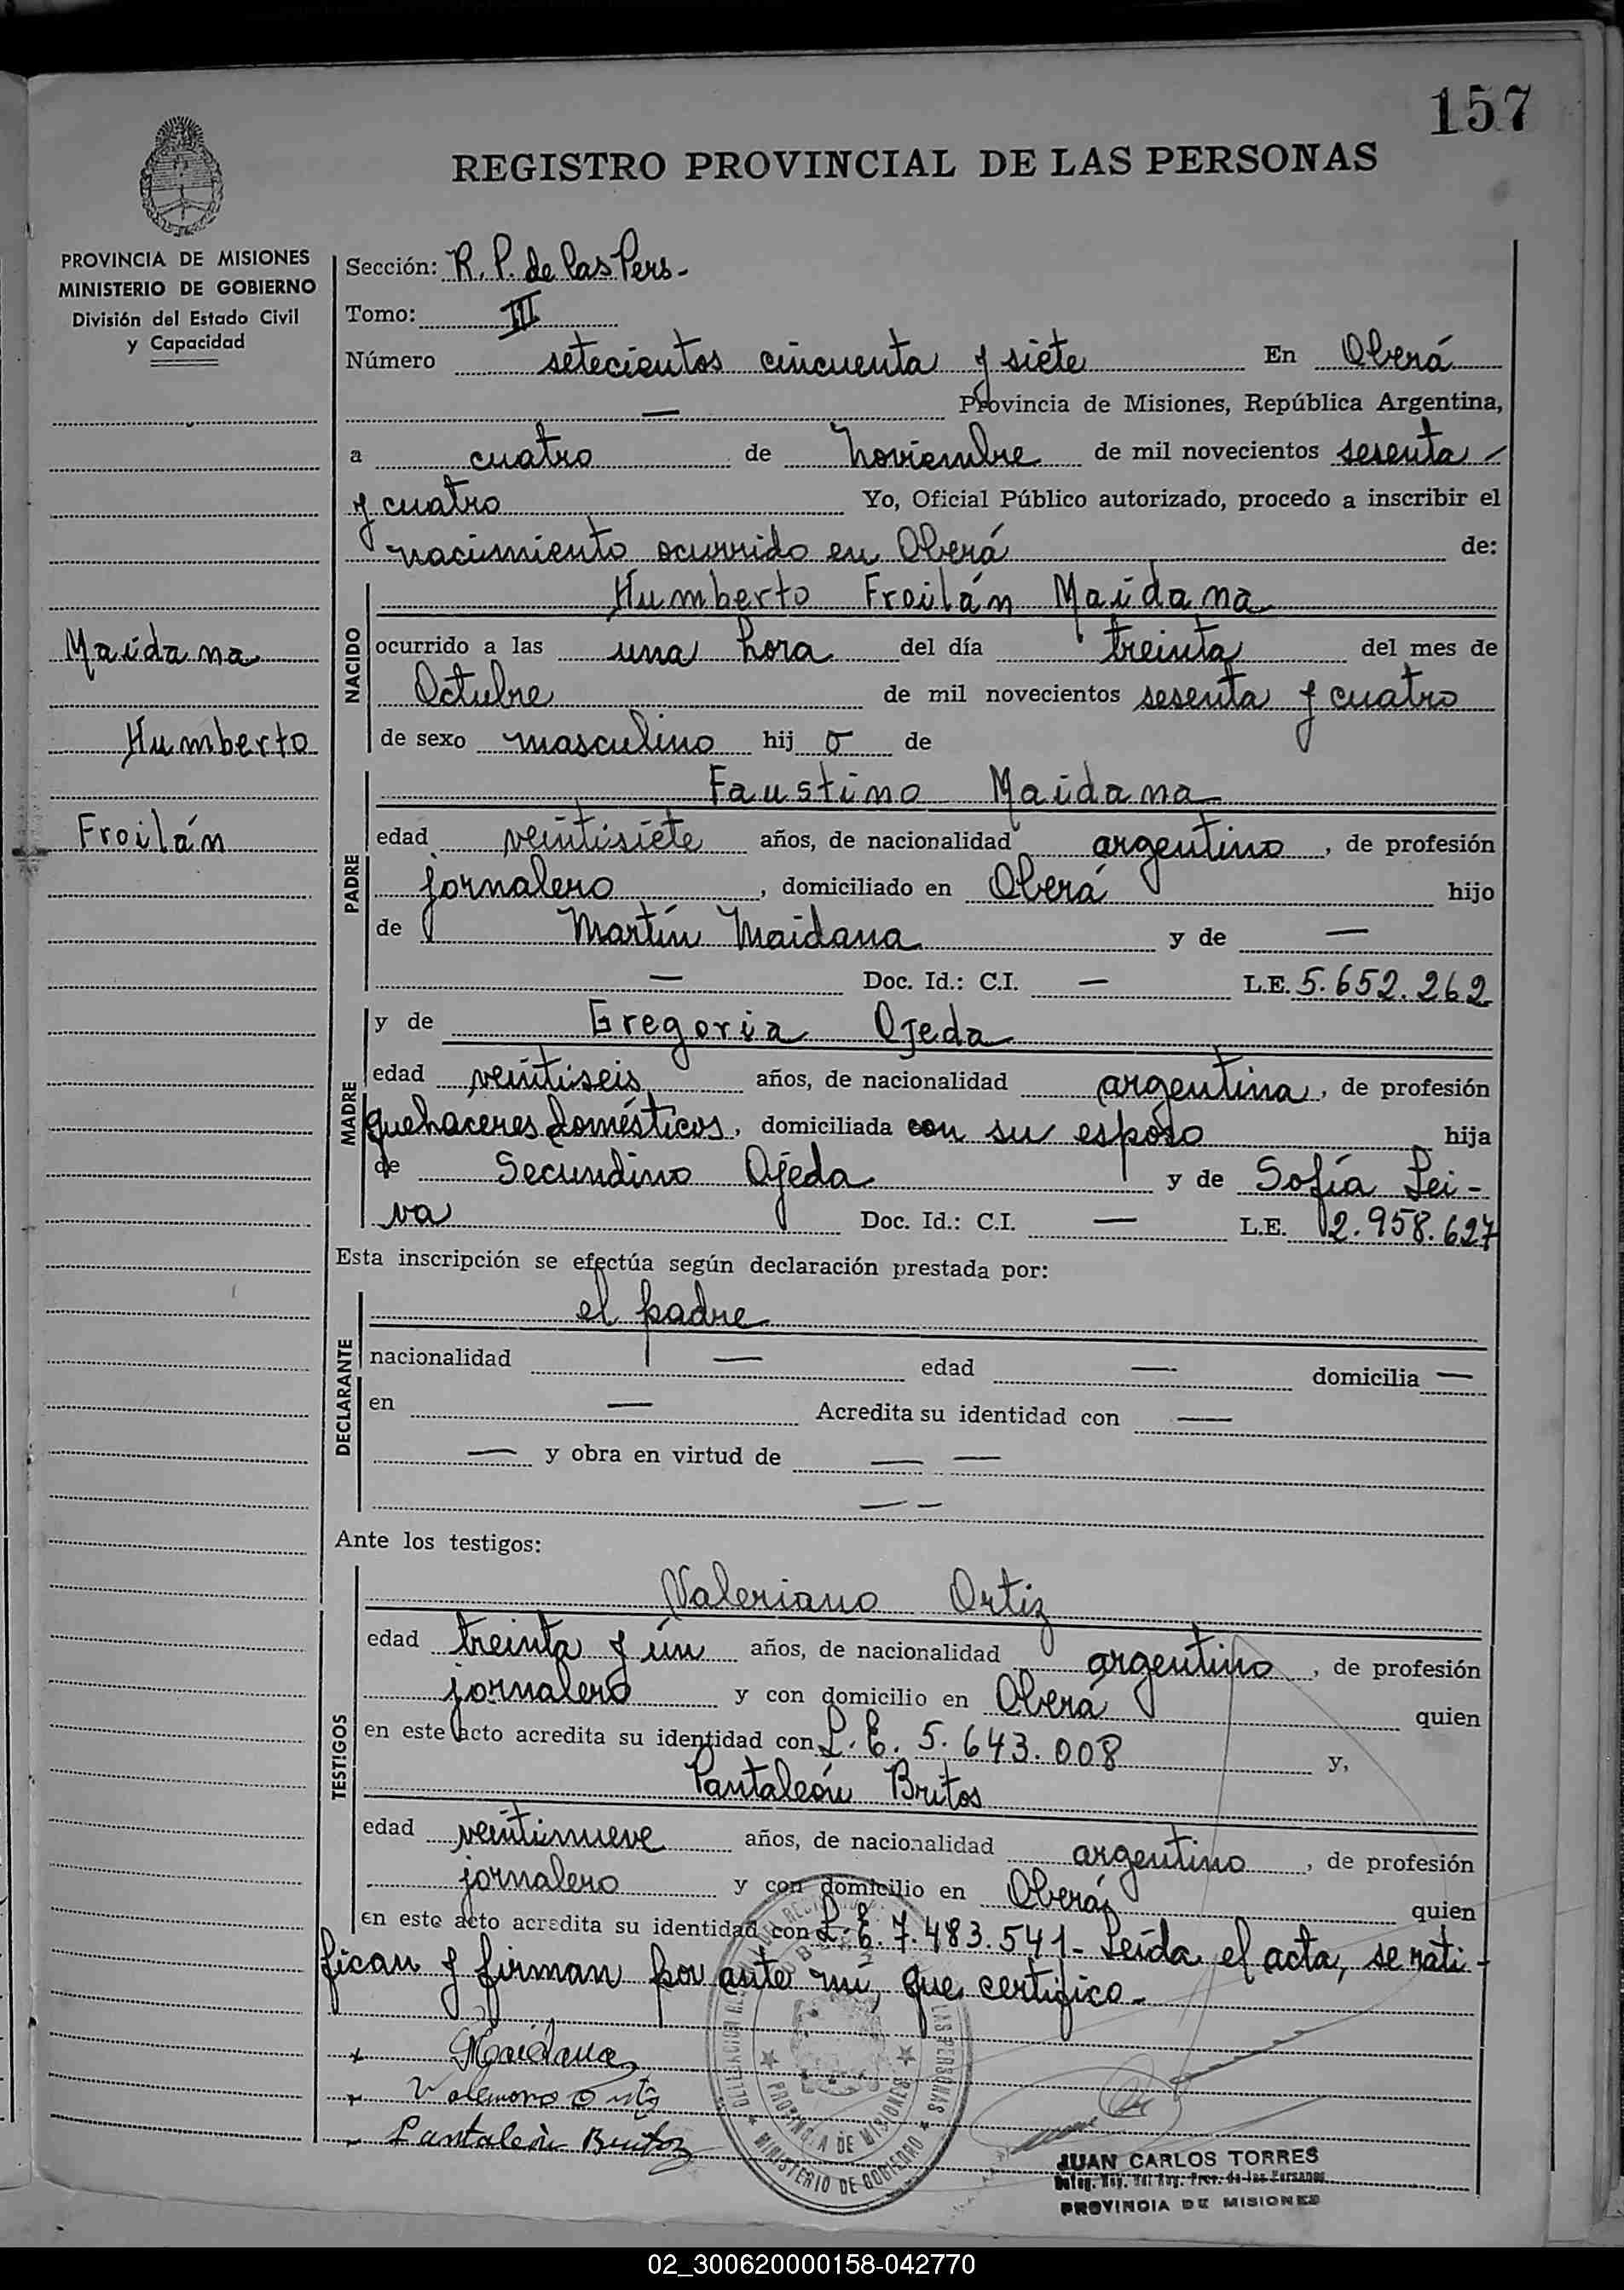 157
REGISTRO PROVINCIAL DE LAS PERSONAS
PROVINCIA DE MISIONES
MINISTERIO DE GOBIERNO
División del Estado Civil
y Capacidad
Maidana
Humberto
Froilán
Sección: R. P. de las Pers-
Tomo: III
Número setecientos cincuenta y siete En Oberá
— Provincia de Misiones, República Argentina,
a cuatro de Noviembre de mil novecientos sesenta
y cuatro Yo, Oficial Público autorizado, procedo a inscribir el
nacimiento ocurrido en Oberá de:
NACIDO
Humberto Froilán Maidana
ocurrido a las una hora del día treinta del mes de
Octubre de mil novecientos sesenta y cuatro
de sexo masculino hij o de
PADRE
Faustino Maidana
edad veintisiete años, de nacionalidad argentino, de profesión
jornalero, domiciliado en Oberá hijo
de Martín Maidana y de —
— Doc. Id.: C.I. — L.E. 5.652.262
MADRE
y de Gregoria Ojeda
edad veintiseis años, de nacionalidad argentina, de profesión
quehaceres domésticos, domiciliada con su esposo hija
de Secundino Ojeda y de Sofía Lei-
va Doc. Id.: C.I. — L.E. 2.958.627
Esta inscripción se efectúa según declaración prestada por:
DECLARANTE
el padre
nacionalidad — edad — domicilia —
en — Acredita su identidad con —
— y obra en virtud de — —
— —
Ante los testigos:
TESTIGOS
Valeriano Ortiz
edad treinta y ún años, de nacionalidad argentino, de profesión
jornalero y con domicilio en Oberá quien
en este acto acredita su identidad con L.E. 5.643.008 y,
Pantaleón Britos
edad veintinueve años, de nacionalidad argentino, de profesión
jornalero y con domicilio en Oberá quien
en este acto acredita su identidad con L.E. 7.483.541- Leída el acta, se rati-
fican y firman por ante mí, que certifico-
Maidana
Valeriano Ortiz
Pantaleón Britos
LAS PERSONAS
PROVINCIA DE MISIONES
MINISTERIO DE GOBIERNO
JUAN CARLOS TORRES
PROVINCIA DE MISIONES
02_300620000158-042770